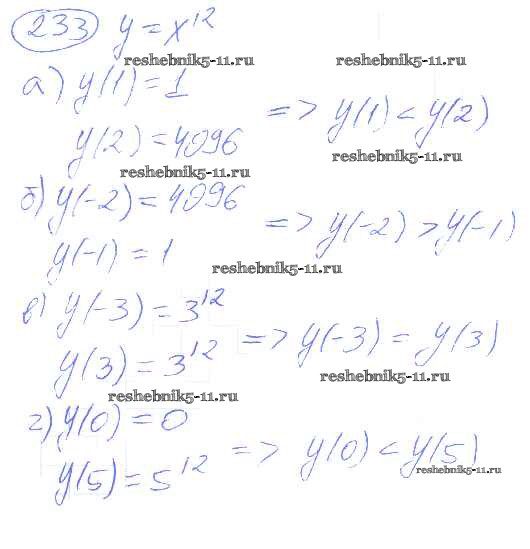 233 y = x^12
reshebnik5-11.ru reshebnik5-11.ru
а) y(1) = 1
=> y(1) < y(2)
y(2) = 4096
reshebnik5-11.ru reshebnik5-11.ru
б) y(-2) = 4096
=> y(-2) > y(-1)
y(-1) = 1
reshebnik5-11.ru
в) y(-3) = 3^12
=> y(-3) = y(3)
y(3) = 3^12
reshebnik5-11.ru
reshebnik5-11.ru
г) y(0) = 0
=> y(0) < y(5)
y(5) = 5^12
reshebnik5-11.ru